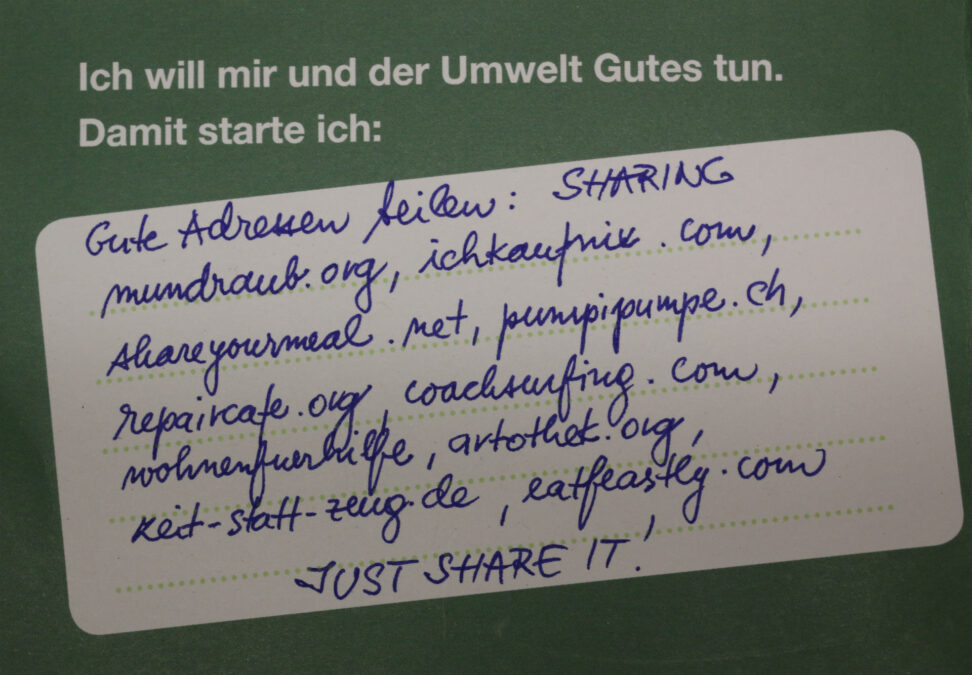 Ich will mir und der Umwelt Gutes tun.
Damit starte ich:
Gute Adressen teilen: SHARING
mundraub.org, ichkaufnix.com,
shareyourmeal.net, pumpipumpe.ch,
repaircafe.org, coachsurfing.com,
wohnenfuerhilfe, artothek.org,
zeit-statt-zeug.de, eatfeastly.com
JUST SHARE IT!